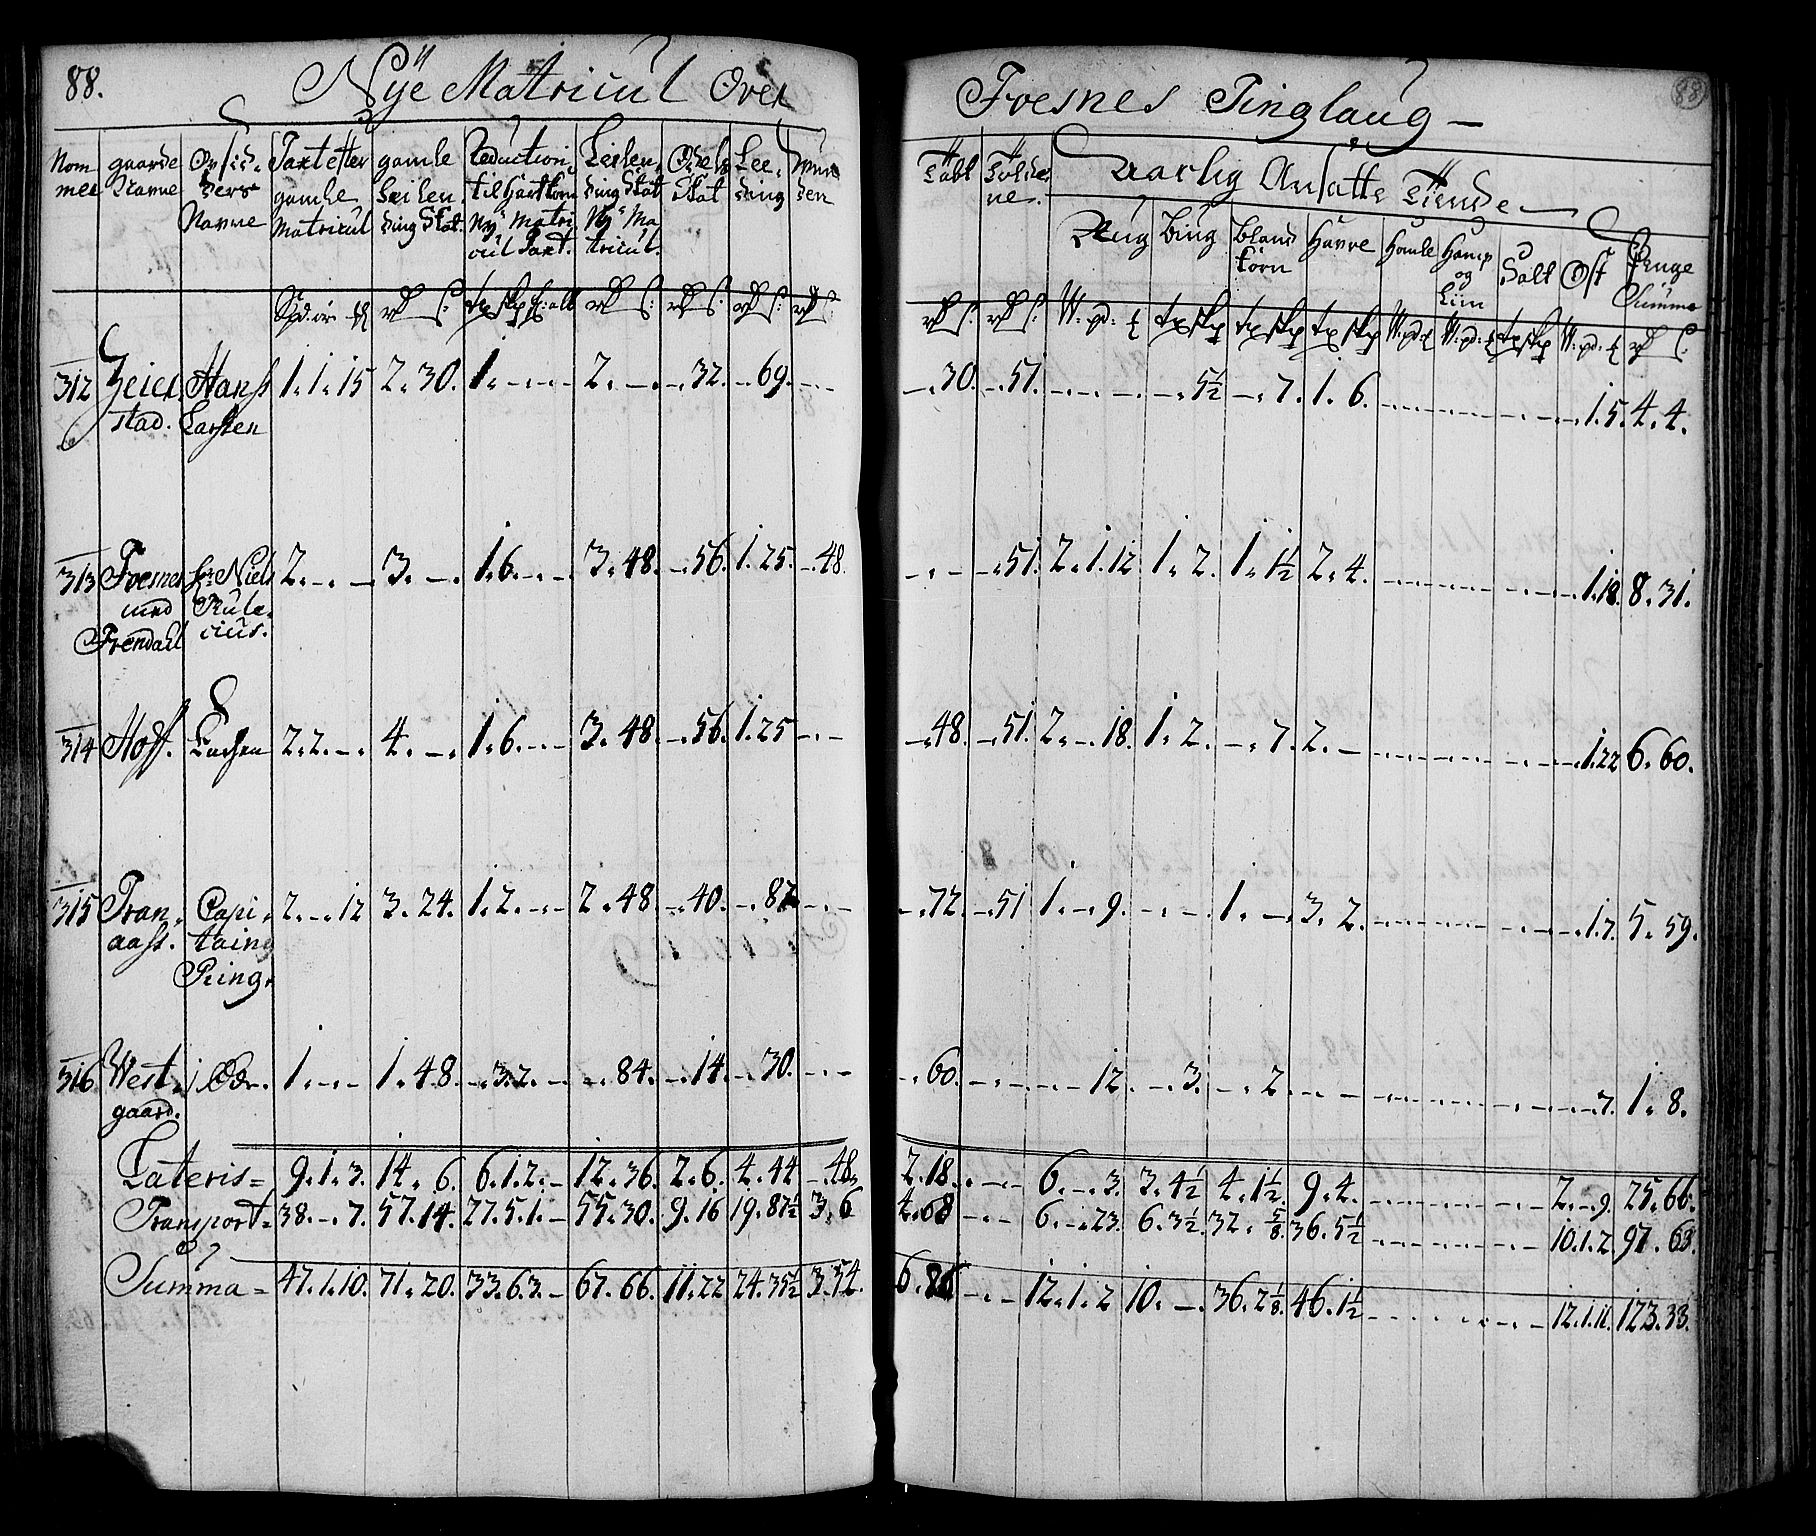 88. Nÿe Matricul Over Foesnes Tinglaug 88
Nom mer | gaarde Navne | Opsid- ders Navne | Taxt efter gamle Matricul | gamle Leilen- ding Skat. | Reduction til Hartkorn Ny Matri cul Taxt. | Leilen- ding Skat Ny Ma tricul. | Odels Skat | Lee- ding | | | | Aarlig Ansatte Tiende
Rug | Biug | Bland korn | Havre | Homle | Hamp og Liin | Salt | Ost | Penge Summa
312 | Zeier- stad. | Hans Larsen | 1. 1. 15 | 2. 30. | 1. - - - | 2. - | -. 32. | -. 69. | - - | -. 30. | -. 51. | - - - | -. 5½ | -. 7. | 1. 6. | - - - | - - - | - - | -. 1. 5. | 4. 4.
313 | Foesnes med Frendahl | hr. Niels Rule- cius. | 2. -. - | 3. - | 1. 6. - - | 3. 48. | -. 56. | 1. 25. | -. 48. | - - | -. 51. | 2. 1. 12 | 1. 2. | 1. 1½ | 2. 4. | - - - | - - - | - - | -. 1. 18. | 8. 31.
314 | Hoff. | Enchen | 2. 2. - | 4. - | 1. 6. - - | 3. 48. | -. 56. | 1. 25 | - - | -. 48. | -. 51. | 2. -. 18. | 1. 2. | -. 7. | 2. - | - - - | - - - | - - | -. 1. 22 | 6. 60.
315 | Tran- aass. | Capi- taing Ring. | 2. -. 12 | 3. 24. | 1. 2. - - | 2. 48. | -. 40. | -. 87 | - - | -. 72. | -. 51 | 1. -. 9. | - - | 1. - | 3. 2. | - - - | - - - | - - | -. 1. 7. | 5. 59.
316. | West- gaard. | Øde. | 1. - - | 1. 48. | -. 3. 2. - | -. 84. | -. 14. | -. 30. | - - | -. 60. | - - | - - 12. | -. 3. | -. 2 | - - | - - - | - - - | - - | - -. 7. | 1. 8.
Lateris = 9. 1. 3. | 14. 6. | 6. 1. 2. - | 12. 36. | 2. 6. | 4. 44 | -. 48. | 2. 18. | - - | 6. -. 3. | 3. 4½ | 4. 1½. | 9. 4. | - - - | - - - | - - | 2. -. 9. | 25. 66.
Transport = 38. -. 7. | 57. 14. | 27. 5. 1. - | 55. 30. | 9. 16 | 19. 87½ | 3. 6 | 4. 68 | - - | 6. -. 23. | 6. 3½. | 32. ⅝. | 36. 5½ | - - - | - - - | - - | 10. 1. 2. | 97. 63.
Summa = 47. 1. 10. | 71. 20. | 33. 6. 3. - | 67. 66. | 11. 22 | 24. 35½ | 3. 54. | 6. 86 | - - | 12. 1. 2 | 10. - | 36. 2⅛. | 46. 1½ | - - - | - - - | - - | 12. 1. 11. | 123. 33.